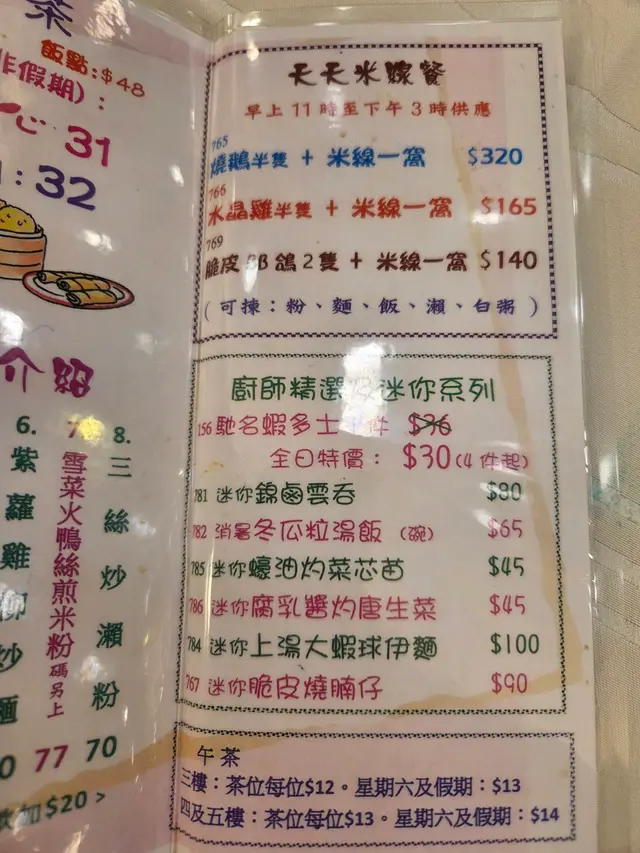 茶
飯點:$48
非假期)：
心 31
: 32
介紹
6.
紫蘿雞柳炒麵
7.
雪菜火鴨絲煎米粉 碼另上
77
8.
三絲炒瀨粉
70
加$20 >
天天米線餐
早上11時至下午3時供應
765
燒鵝半隻 + 米線一窩 $320
766
水晶雞半隻 + 米線一窩 $165
769
脆皮BB鴿2隻 + 米線一窩 $140
( 可揀：粉、麵、飯、瀨、白粥 )
廚師精選 迷你系列
156 馳名蝦多士 件 $36
全日特價： $30(4件起)
781 迷你錦鹵雲吞 $80
782 消暑冬瓜粒湯飯 (碗) $65
785 迷你蠔油灼菜芯苗 $45
786 迷你腐乳醬灼唐生菜 $45
784 迷你上湯大蝦球伊麵 $100
767 迷你脆皮燒腩仔 $90
午茶
三樓：茶位每位$12。星期六及假期：$13
四及五樓：茶位每位$13。星期六及假期：$14